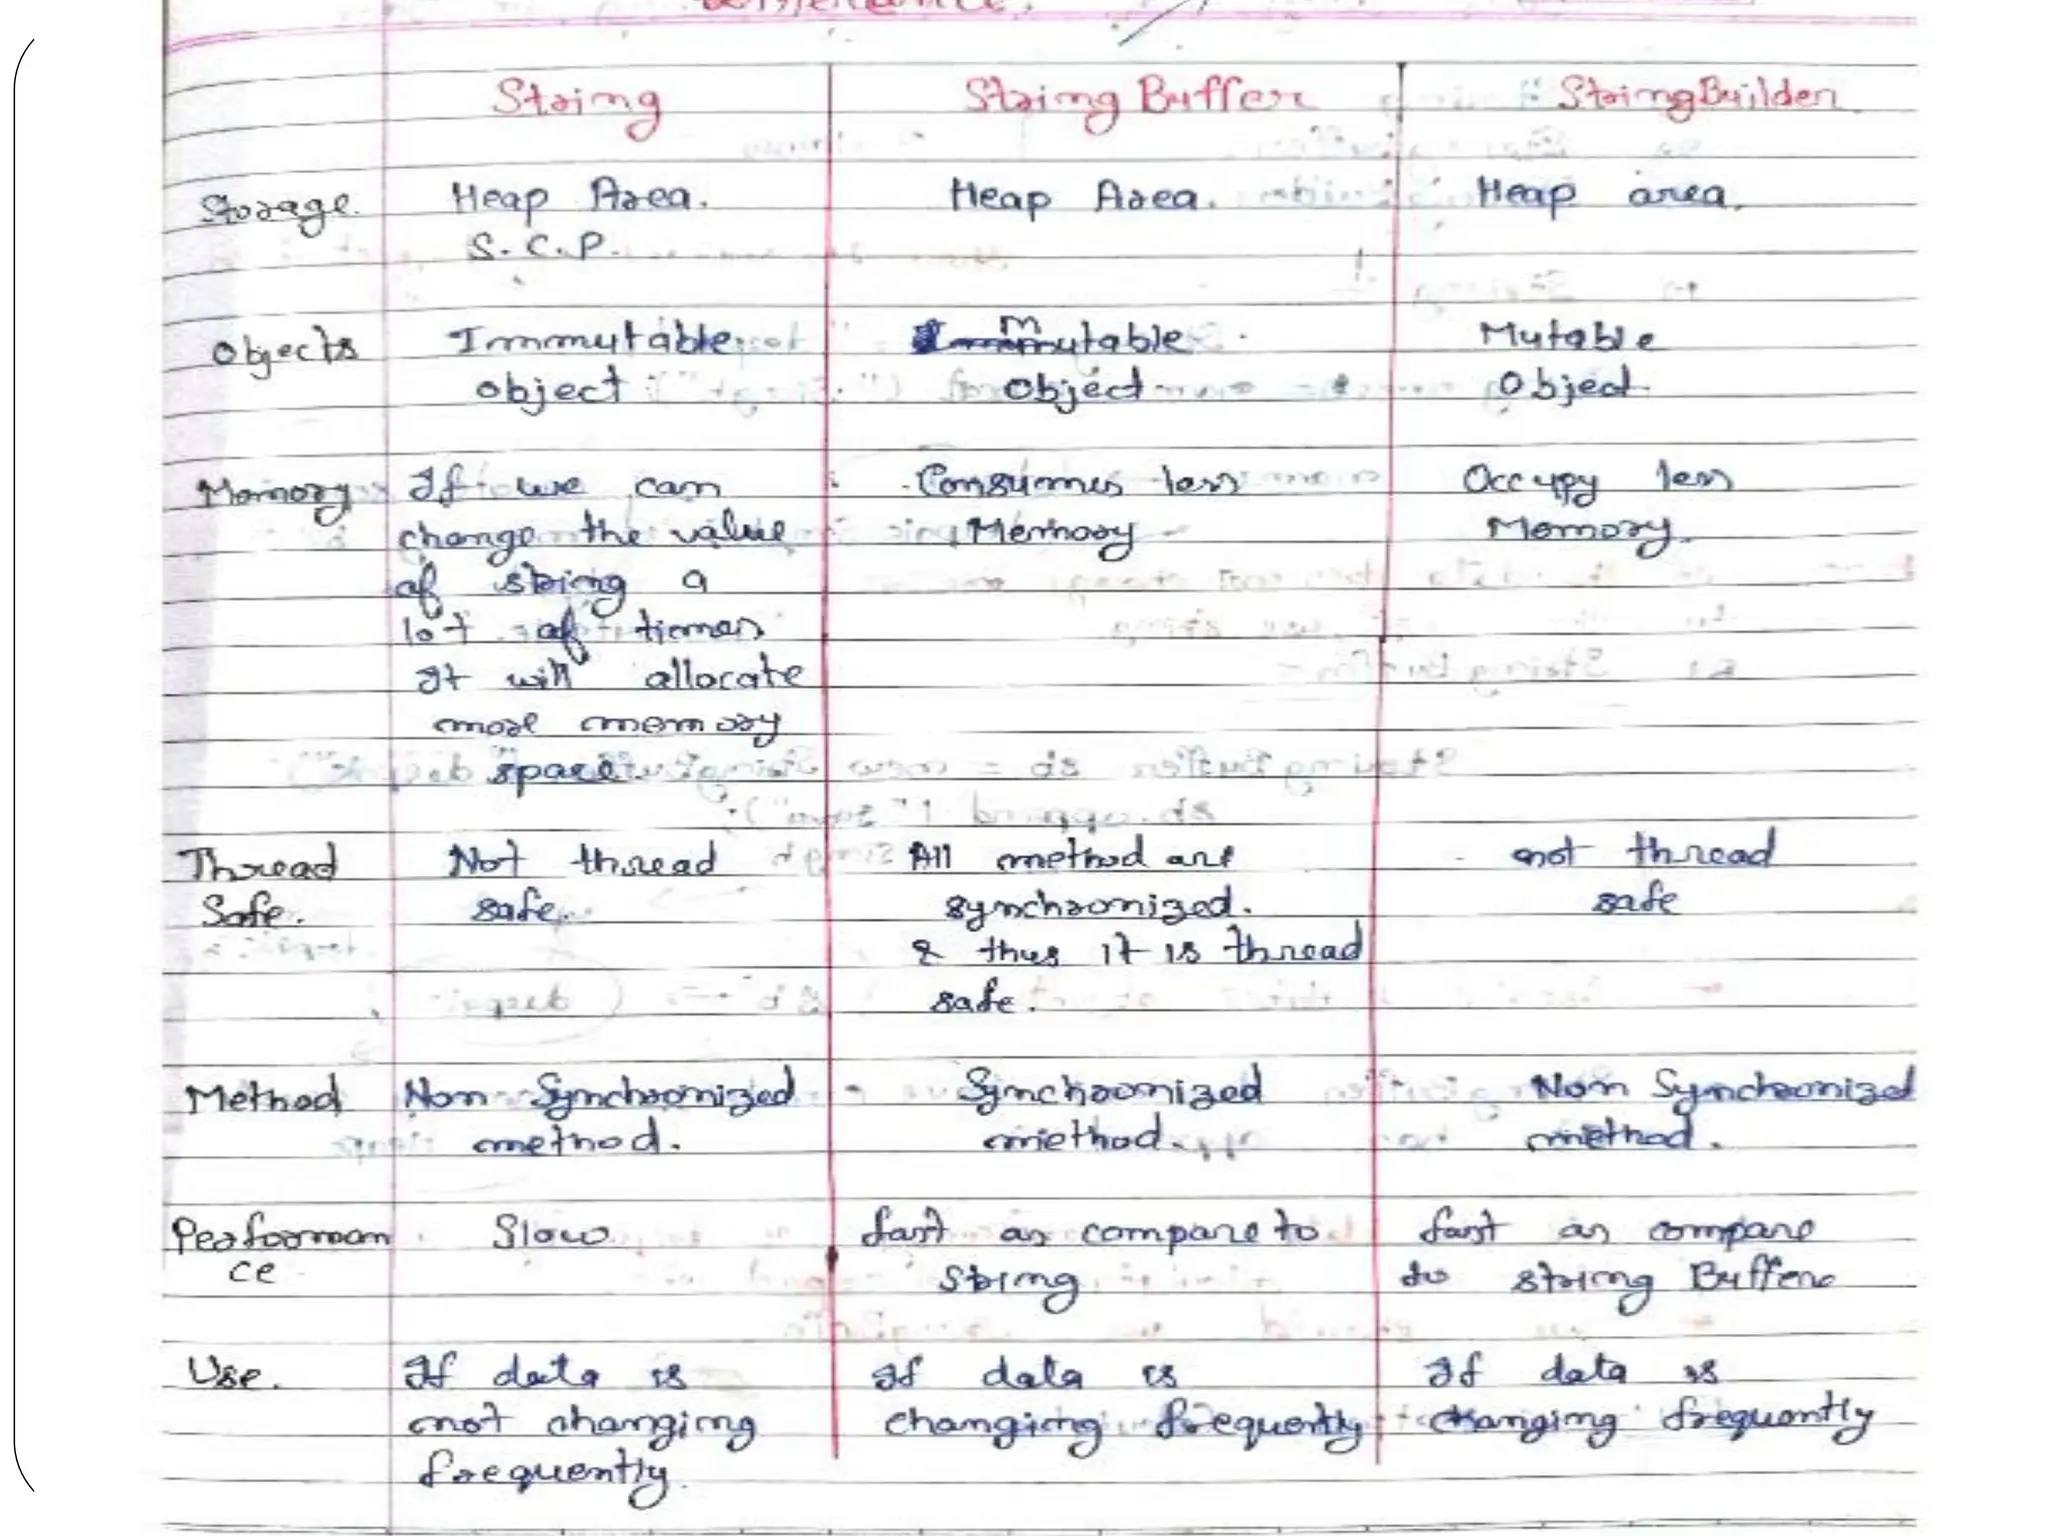 Difference.
String StringBuffer StringBuilder
Storage. Heap Area. Heap Area. Heap area.
S.C.P.
Objects Immutable mutable Mutable
object Object Object
Memory If we can Consumes less Occupy less
change the value Memory Memory.
of string a
lot of times
It will allocate
more memory
space
Thread Not thread All method are not thread
Safe. safe. synchronized. safe
& thus it is thread
safe.
Method Non Synchronized Synchronized Non Synchronized
method. method. method.
Performan Slow fast as compare to fast as compare
ce String to string Buffer
Use. If data is If data is If data is
not changing changing frequently changing frequently
frequently.